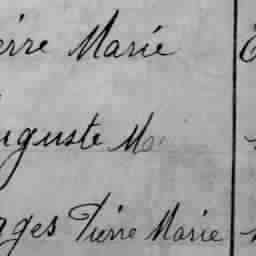 erre Marie
uguste Ma
ages Pierre Marie